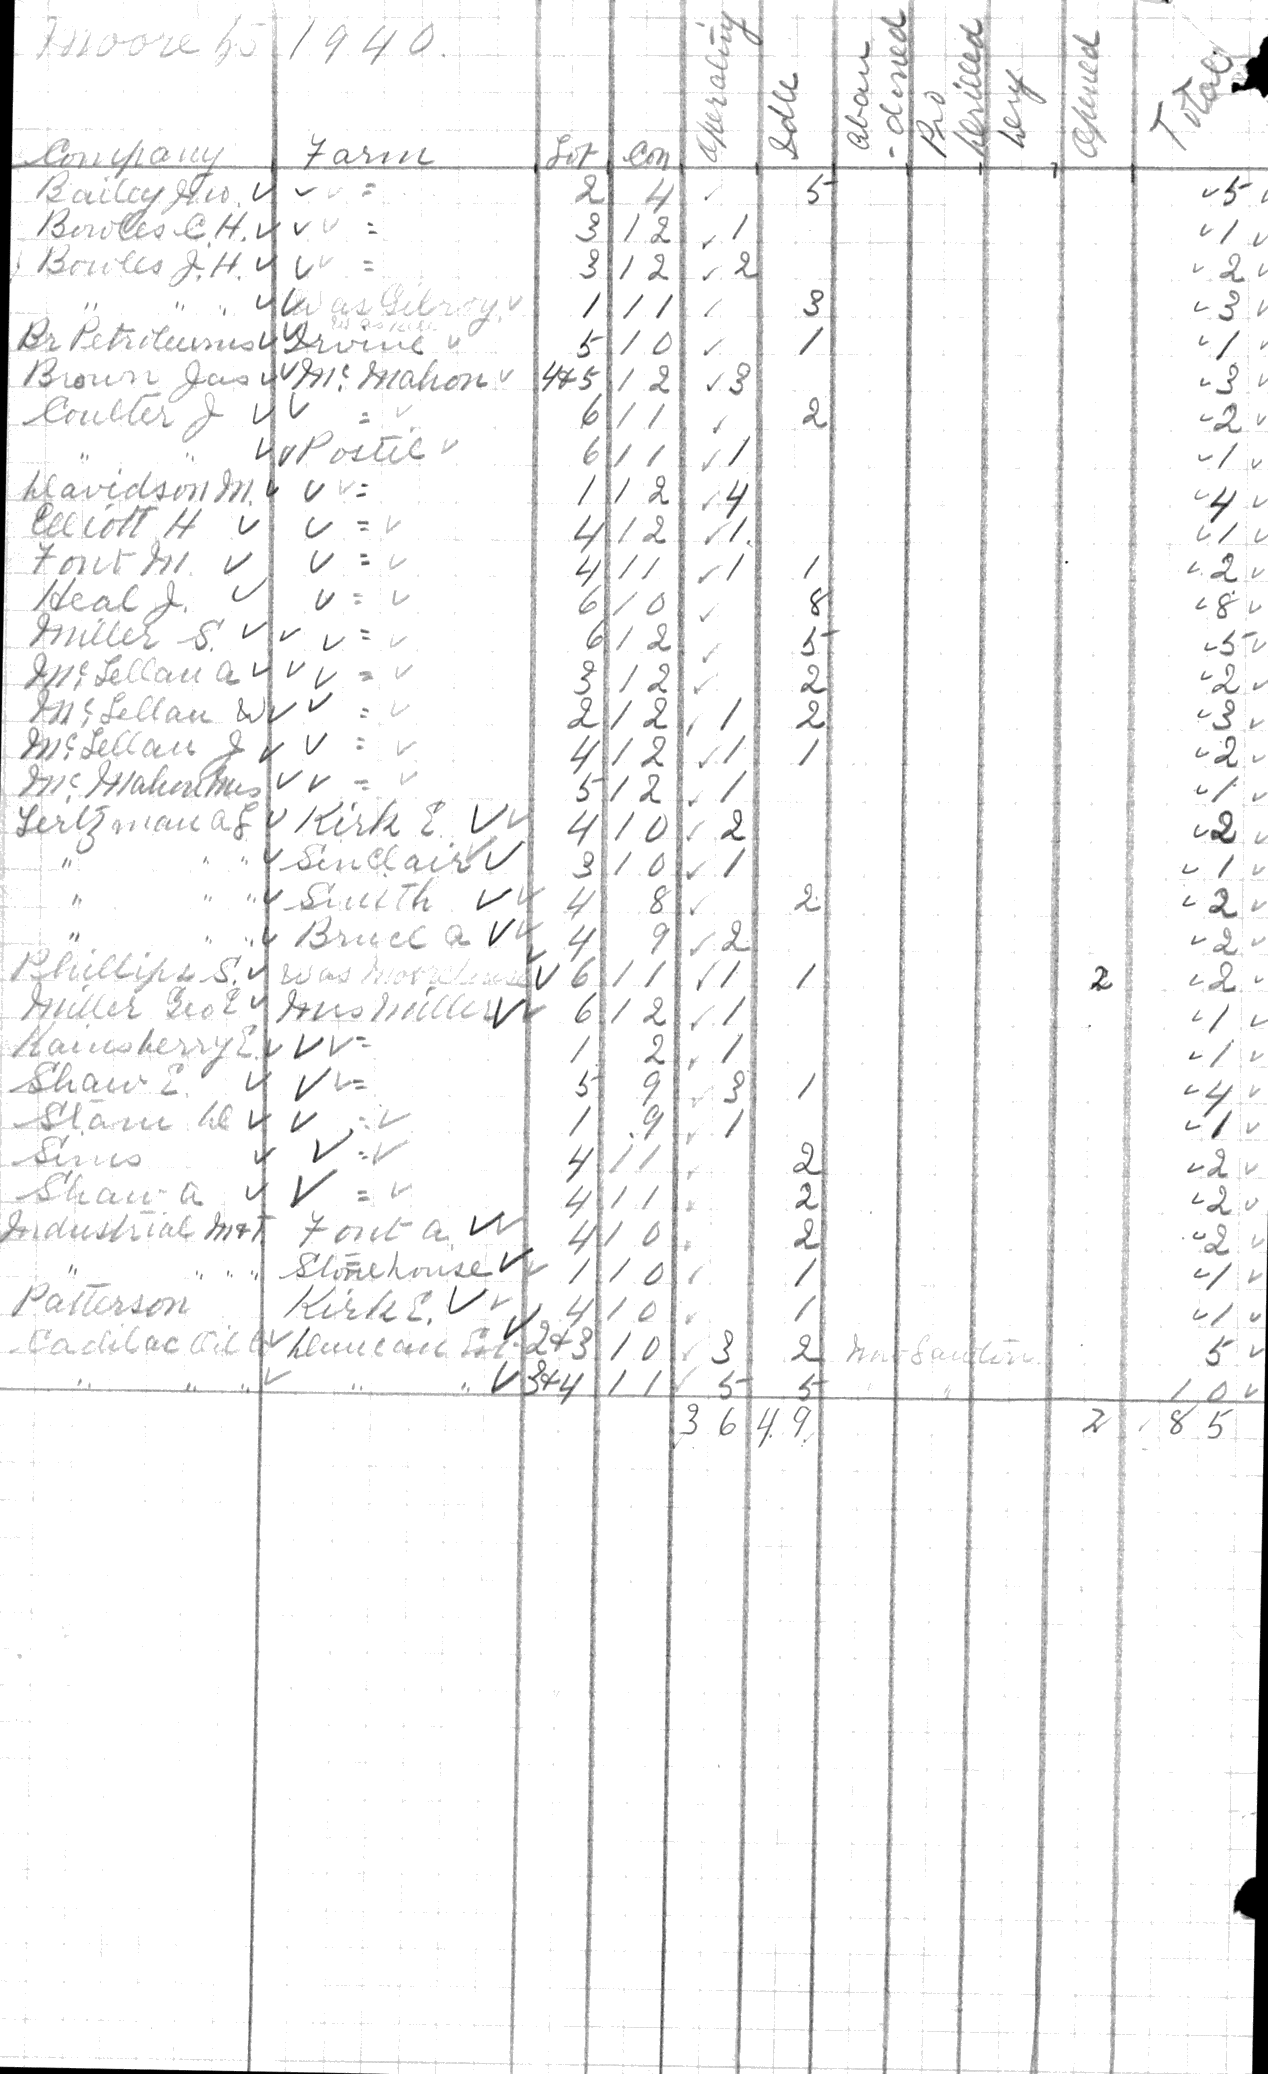 Moore 1940.
Company Farm Lot Con Operating Idle Aban-doned Pro Drilled Dry Opened Total
Bailey Geo. ✓ ✓ ✓ = 2 4 ✓ 5 ✓5 ✓
Bowles C. H. ✓ ✓ ✓ = 3 12 ✓ 1 ✓1 ✓
Bowles J. H. ✓ ✓ ✓ = 3 12 ✓ 2 ✓2 ✓
" " " ✓ ✓ Was Gilroy ✓ 1 11 ✓ 3 ✓3 ✓
Br Petroleums ✓ ✓ Irvine ✓ 5 10 ✓ 1 ✓1 ✓
Brown Jas ✓ ✓ Mc Mahon ✓ 4+5 12 ✓ 3 ✓3 ✓
Coulter J ✓ ✓ = ✓ 6 11 ✓ 2 ✓2 ✓
" " ✓ ✓ Postil ✓ 6 11 ✓ 1 ✓1 ✓
Davidson M. ✓ ✓ ✓ = 1 12 ✓ 4 ✓4 ✓
Elliott H ✓ ✓ = ✓ 4 12 ✓ 1. ✓1 ✓
Font M. ✓ ✓ = ✓ 4 11 ✓ 1 1 ✓2 ✓
Heal J. ✓ ✓ = ✓ 6 10 ✓ 8 ✓8 ✓
Miller S. ✓ ✓ ✓ = ✓ 6 12 ✓ 5 ✓5 ✓
Mc Lellan A ✓ ✓ ✓ = ✓ 3 12 ✓ 2 ✓2 ✓
Mc Lellan W ✓ ✓ = ✓ 2 12 ✓ 1 2 ✓3 ✓
Mc Lellan J ✓ ✓ = ✓ 4 12 ✓ 1 1 ✓2 ✓
Mc Mahon Mrs ✓ ✓ = ✓ 5 12 ✓ 1 ✓1 ✓
Lertzman A L ✓ Kirk E. ✓ ✓ 4 10 ✓ 2 ✓2 ✓
" " " ✓ Sinclair ✓ ✓ 3 10 ✓ 1 ✓1 ✓
" " " ✓ Smith ✓ ✓ 4 8 ✓ 2 ✓2 ✓
" " " ✓ Bruce A ✓ ✓ 4 9 ✓ 2 ✓2 ✓
Phillips S. ✓ was Moorehouse ✓ 6 11 ✓ 1 1 2 ✓2 ✓
Miller Geo E ✓ Mrs Miller ✓ ✓ 6 12 ✓ 1 ✓1 ✓
Rainsberry E. ✓ ✓ ✓ = 1 2 ✓ 1 ✓1 ✓
Shaw E. ✓ ✓ ✓ = 5 9 ✓ 3 1 ✓4 ✓
Stam D ✓ ✓ = ✓ 1 9 ✓ 1 ✓1 ✓
Sims ✓ ✓ = ✓ 4 11 ✓ 2 ✓2 ✓
Shaw A ✓ ✓ = ✓ 4 11 2 ✓2 ✓
Industrial M+T Font A. ✓ ✓ 4 10 2 ✓2 ✓
" " " " Stonehouse ✓ ✓ 1 10 ✓ 1 ✓1 ✓
Patterson Kirk E. ✓ ✓ 4 10 ✓ 1 ✓1 ✓
Cadilac Oil Co ✓ Duncan Est ✓ 2+3 10 ✓ 3 2 5 ✓
" " " ✓ " " ✓ 3+4 11 ✓ 5 5 " " 10 ✓
36 49 2 85